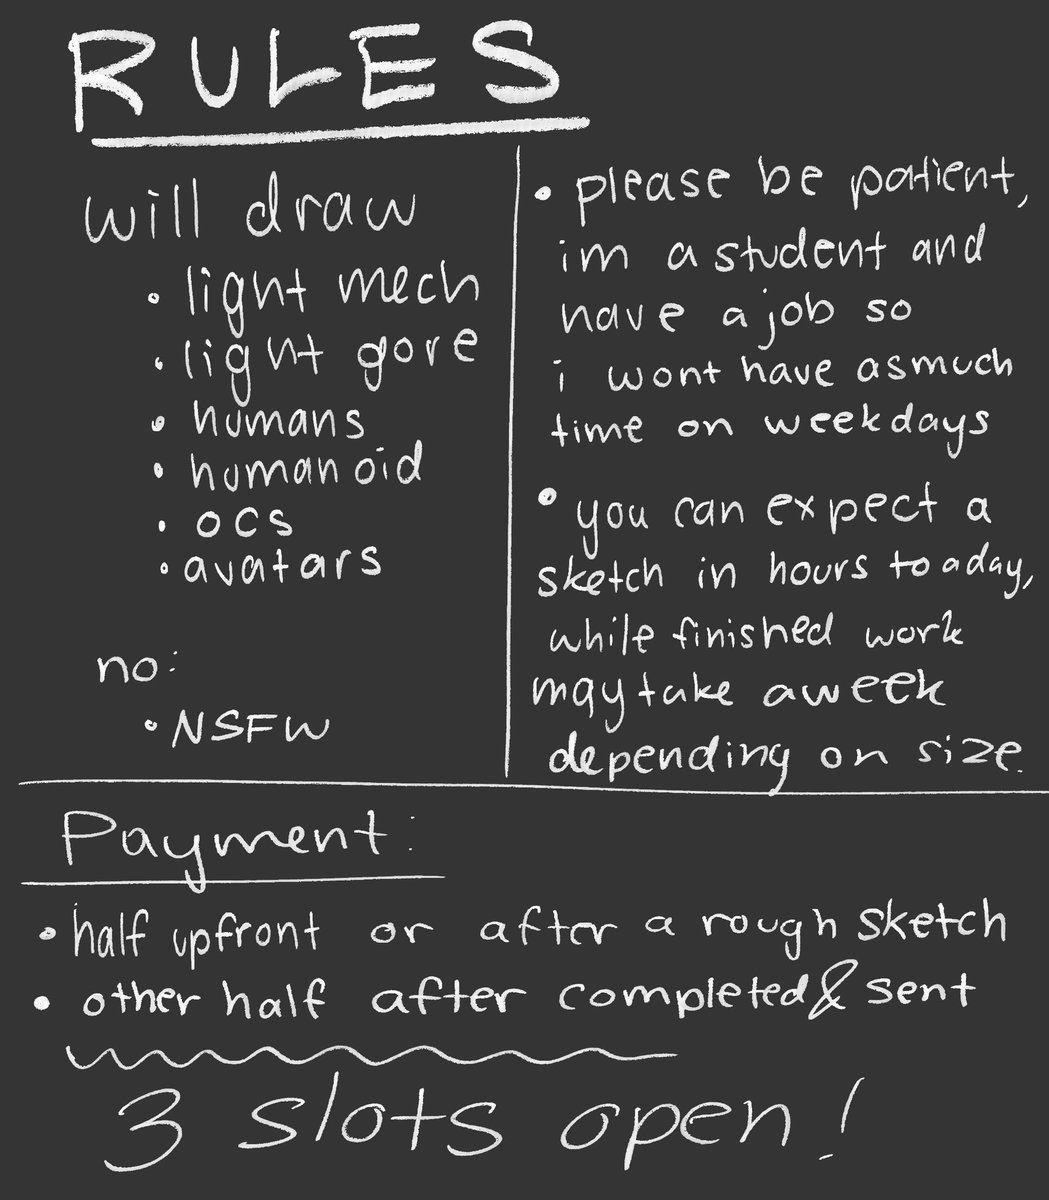 RULES
will draw
• light mech
• light gore
• humans
• humanoid
• ocs
• avatars
no:
• NSFW
• please be patient,
im a student and
have a job so
i wont have as much
time on weekdays
• you can expect a
sketch in hours to a day,
while finished work
may take a week
depending on size.
Payment:
• half upfront or after a rough sketch
• other half after completed & sent
3 slots open!